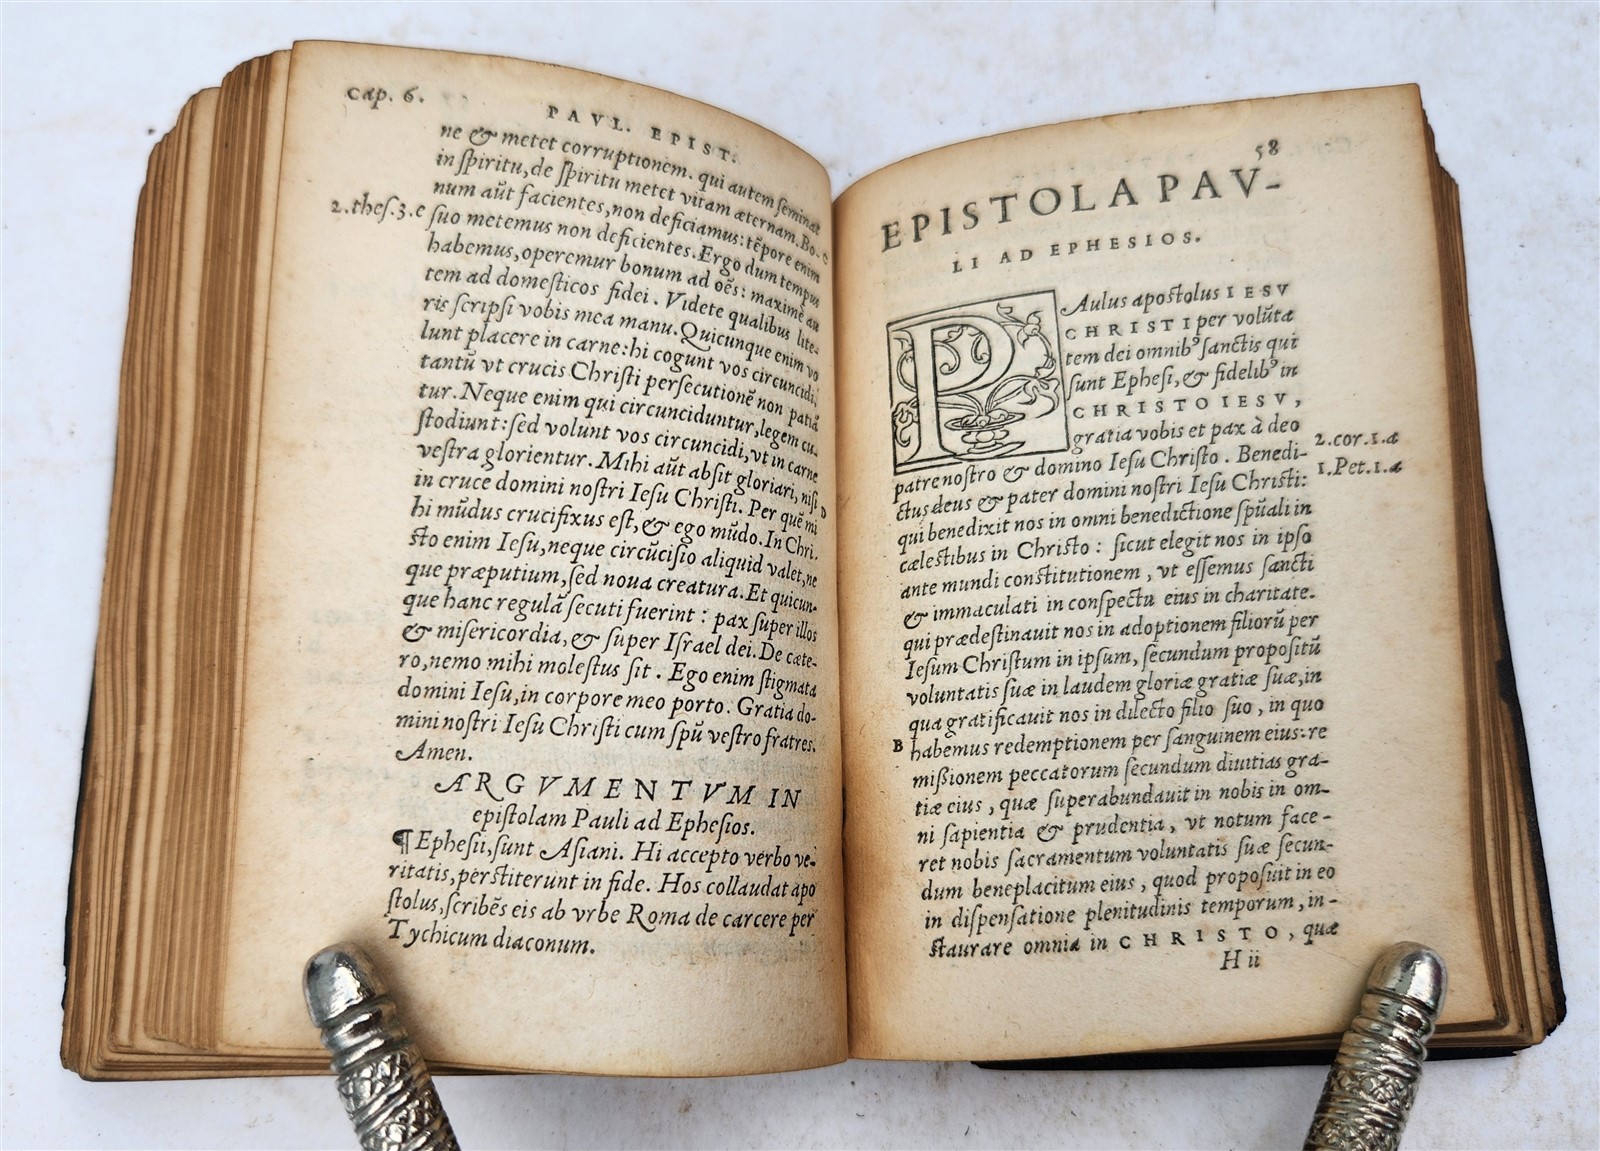 Cap. 6.
PAVL. EPIST.
ne & metet corruptionem. qui autem seminat
in spiritu, de spiritu metet vitam æternam. Bo- C
num aūt facientes, non deficiamus: tēpore enim
2.thes.3.c suo metemus non deficientes. Ergo dum tempus
habemus, operemur bonum ad oēs: maximè au
tem ad domesticos fidei. Videte qualibus lite-
ris scripsi vobis mea manu. Quicunque enim vo
lunt placere in carne: hi cogunt vos circuncidi,
tantū vt crucis Christi persecutionē non patiā
tur. Neque enim qui circunciduntur, legem cu-
stodiunt: sed volunt vos circuncidi, vt in carne
vestra glorientur. Mihi aūt absit gloriari, nisi
in cruce domini nostri Iesu Christi. Per quē mi D
hi mūdus crucifixus est, & ego mūdo. In Chri-
sto enim Iesu, neque circūcisio aliquid valet, ne
que præputium, sed noua creatura. Et quicun-
que hanc regulā secuti fuerint: pax super illos
& misericordia, & super Israel dei. De cæte-
ro, nemo mihi molestus sit. Ego enim stigmata
domini Iesu, in corpore meo porto. Gratia do-
mini nostri Iesu Christi cum spū vestro fratres.
Amen.
ARGVMENTVM IN
epistolam Pauli ad Ephesios.
¶ Ephesii, sunt Asiani. Hi accepto verbo ve-
ritatis, perstiterunt in fide. Hos collaudat apo
stolus, scribēs eis ab vrbe Roma de carcere per
Tychicum diaconum.
58
EPISTOLA PAV-
LI AD EPHESIOS.
PAulus apostolus IESV
CHRISTI per volūta
tem dei omnibꝰ sanctis qui
sunt Ephesi, & fidelibꝰ in
CHRISTO IESV,
gratia vobis et pax à deo 2.cor.1.a
patre nostro & domino Iesu Christo. Benedi- 1.Pet.1.a
ctus deus & pater domini nostri Iesu Christi:
qui benedixit nos in omni benedictione spūali in
cælestibus in Christo: sicut elegit nos in ipso
ante mundi constitutionem, vt essemus sancti
& immaculati in conspectu eius in charitate.
qui prædestinauit nos in adoptionem filiorū per
Iesum Christum in ipsum, secundum propositū
voluntatis suæ in laudem gloriæ gratiæ suæ, in
qua gratificauit nos in dilecto filio suo, in quo
B habemus redemptionem per sanguinem eius: re
missionem peccatorum secundum diuitias gra-
tiæ eius, quæ superabundauit in nobis in om-
ni sapientia & prudentia, vt notum face-
ret nobis sacramentum voluntatis suæ secun-
dum beneplacitum eius, quod proposuit in eo
in dispensatione plenitudinis temporum, in-
staurare omnia in CHRISTO, quæ
H ii